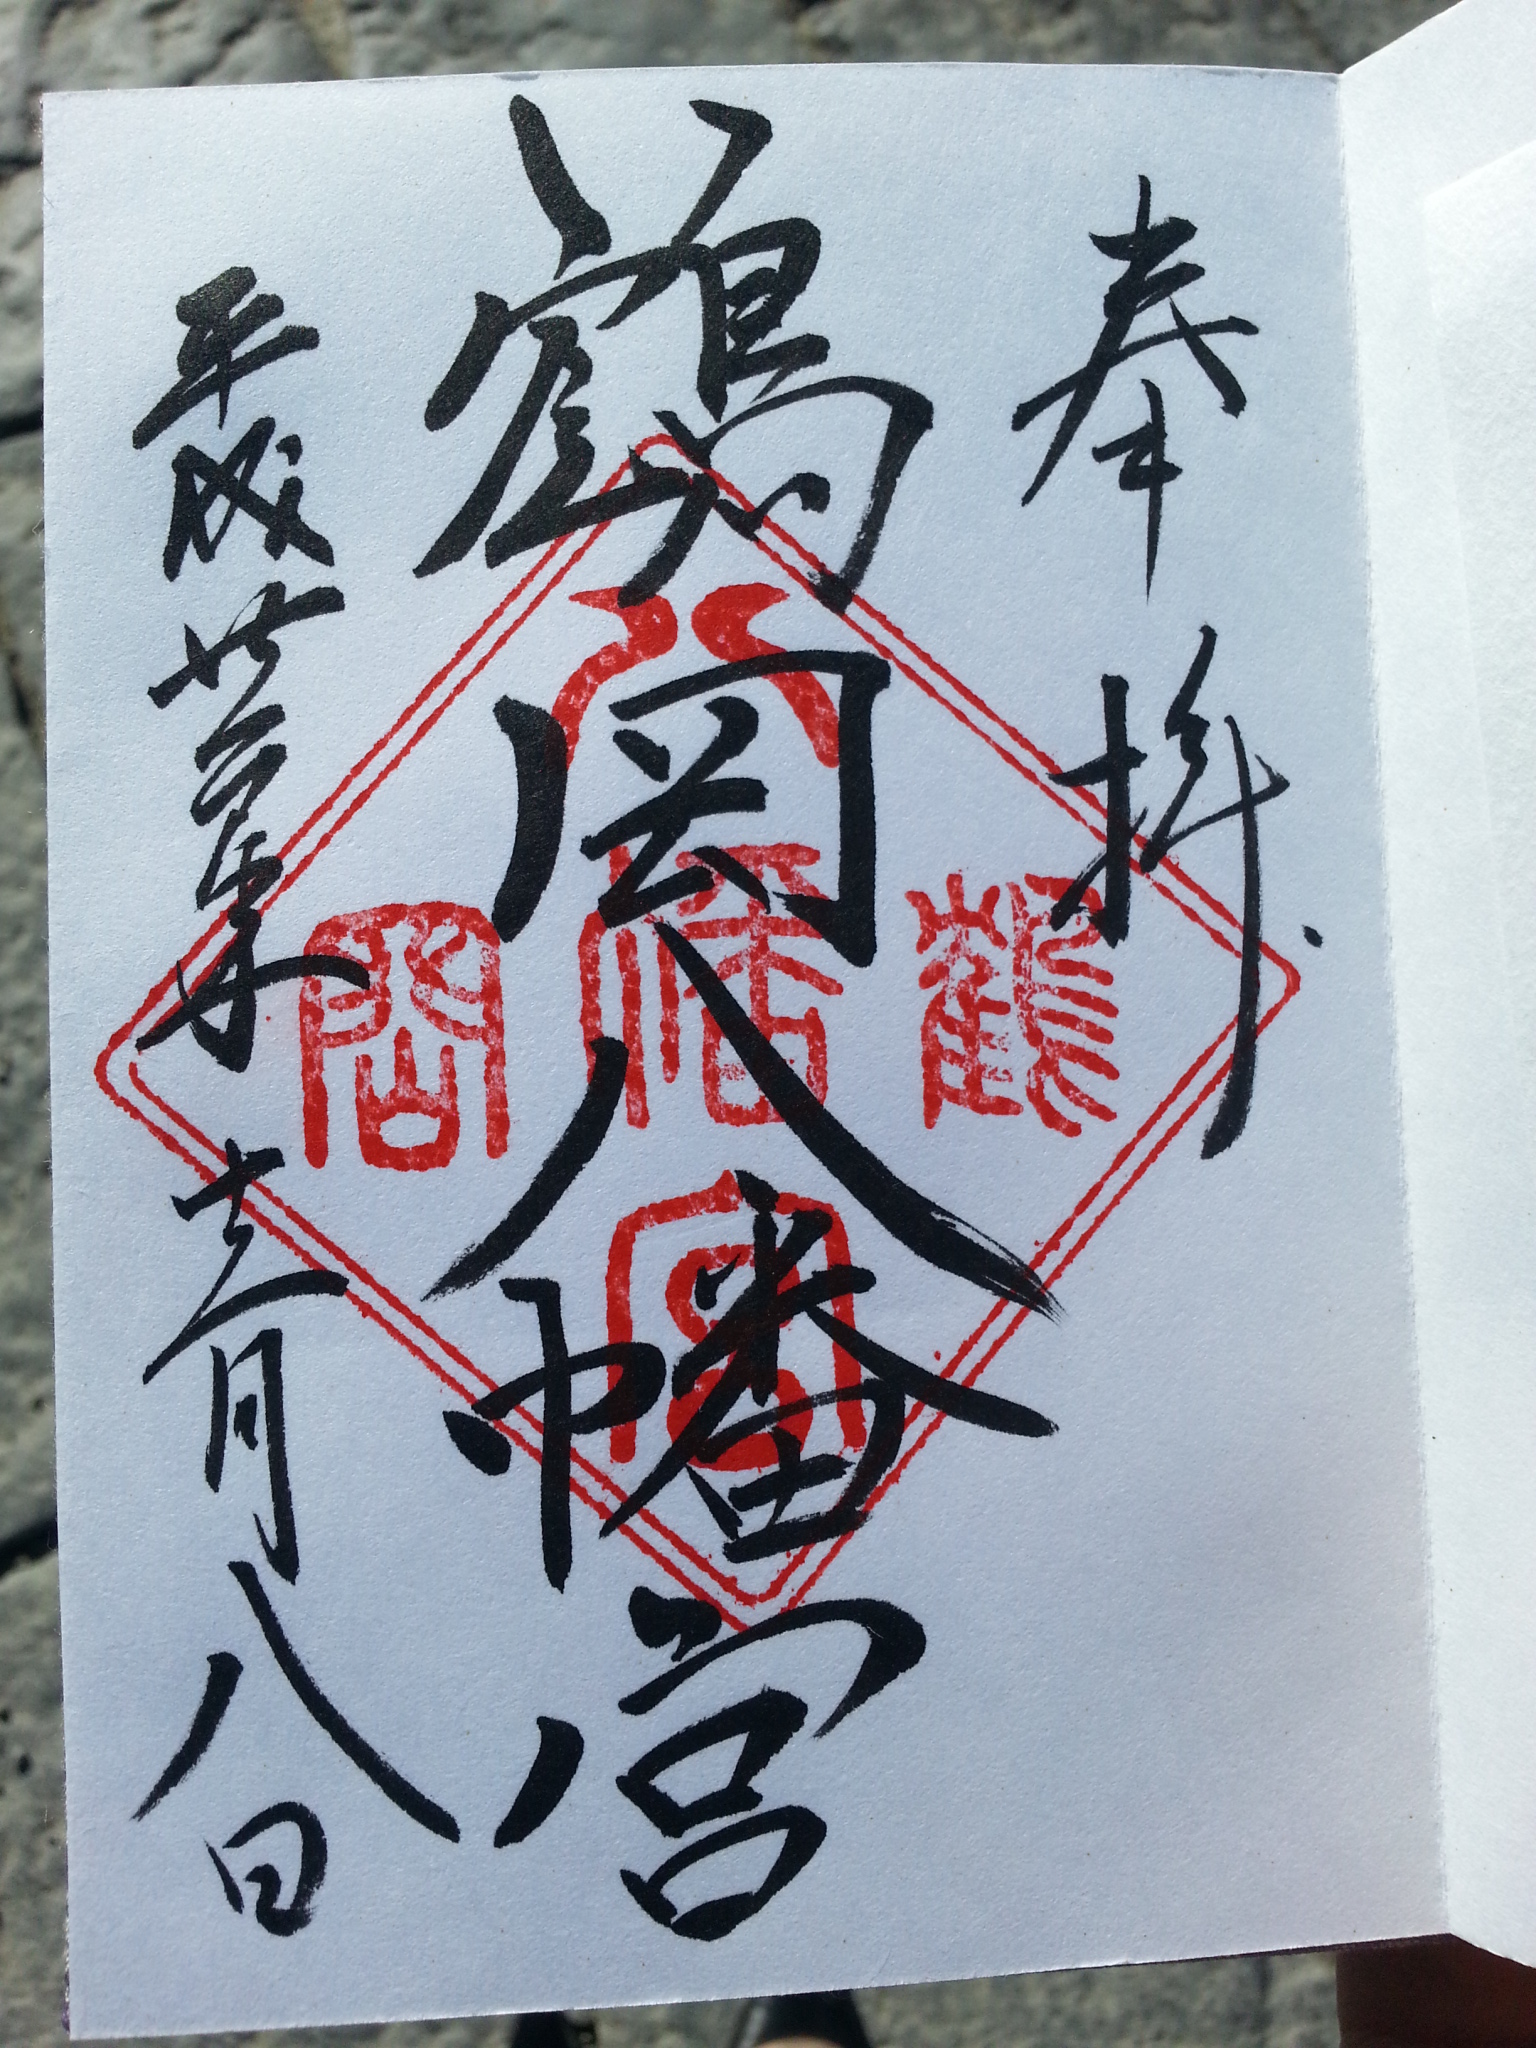 奉拝
鶴岡八幡宮
平成廿年十二月八日
八
鶴幡岡
宮